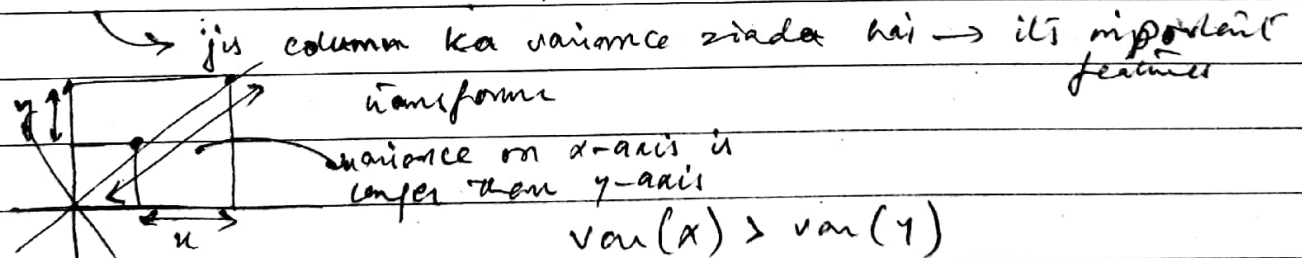 jis column ka variance ziada hai → its important
features
transform
y
variance on x-axis is
longer then y-axis
x
var(x) > var(y)